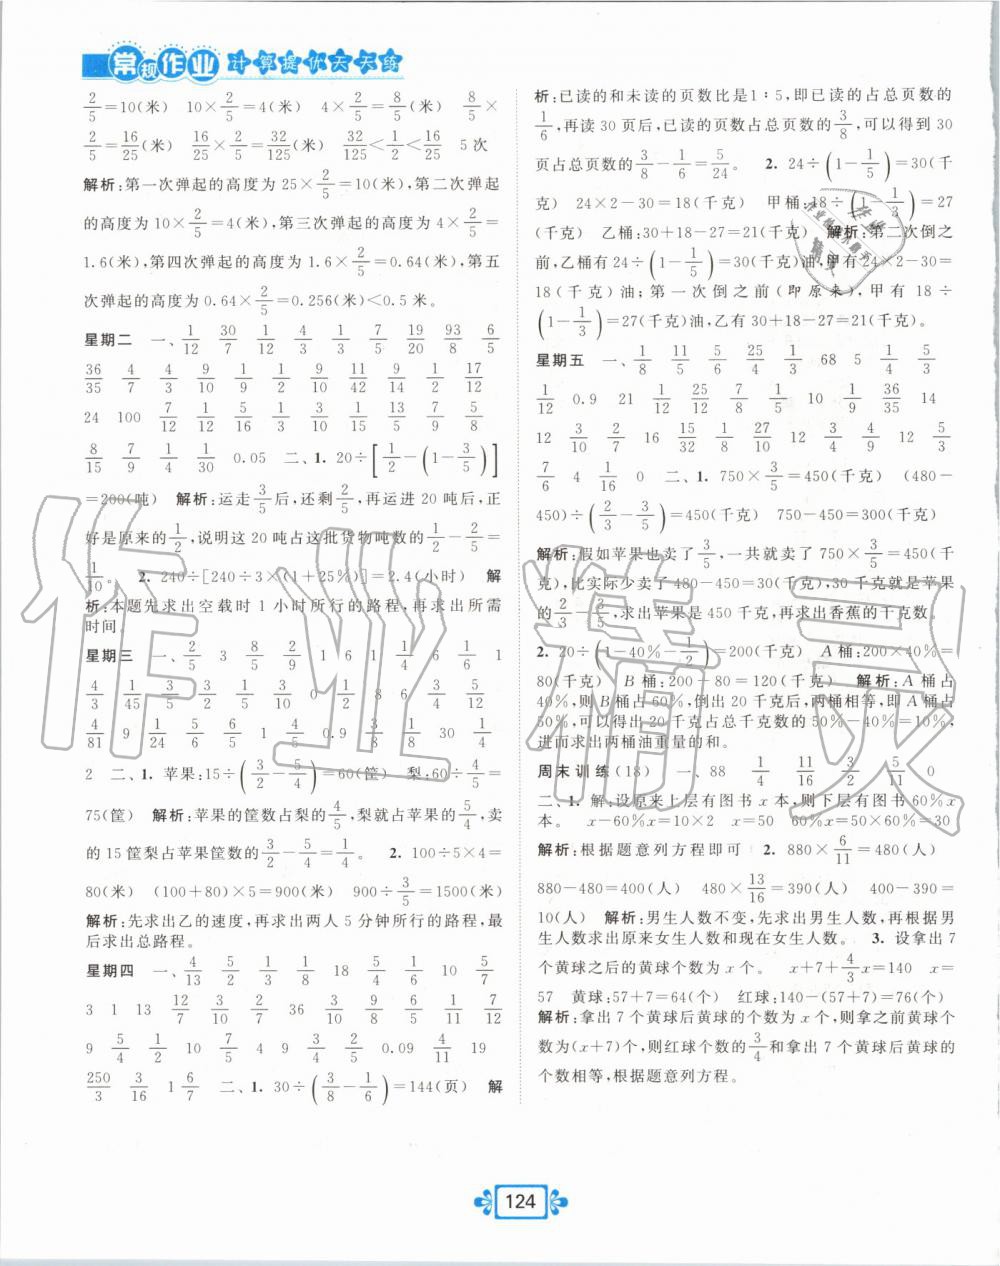 常规作业 计算提优天天练
2/5=10(米) 10×2/5=4(米) 4×2/5=8/5(米) 8/5×
2/5=16/25(米) 16/25×2/5=32/125(米) 32/125<1/2<16/25 5次
解析:第一次弹起的高度为25×2/5=10(米),第二次弹起
的高度为10×2/5=4(米),第三次弹起的高度为4×2/5=
1.6(米),第四次弹起的高度为1.6×2/5=0.64(米),第五
次弹起的高度为0.64×2/5=0.256(米)<0.5米。
星期二 一、1/12 30/7 1/12 4/3 1/3 7/4 19/20 93/8 6/5
36/35 4/7 4/3 9/10 1/9 1/2 9/10 11/42 9/14 1/2 17/12
24 100 7/12 1/12 5/16 1/3 3/10 1/4 15/13 7/9 5/8
8/15 7/9 1/4 1/30 0.05 二、1. 20÷[1/2-(1-3/5)]
=200(吨) 解析:运走3/5后,还剩2/5,再运进20吨后,正
好是原来的1/2,说明这20吨占这批货物吨数的1/2-2/5=
1/10。 2. 240÷[240÷3×(1+25%)]=2.4(小时) 解
析:本题先求出空载时1小时所行的路程,再求出所需
时间。
星期三 一、2/5 3 3/8 2/9 1 6 1 1/4 6 1/6 1
4/3 1/45 3/5 3/8 2/5 1/10 1/3 0.9 3/4 3/8 4/9
4/81 9 1/24 5/6 6/5 1 0.9 9/4 9/8 30 1/4
2 二、1. 苹果:15÷(3/2-5/4)=60(筐) 梨:60×5/4=
75(筐) 解析:苹果的筐数占梨的4/5,梨就占苹果的5/4,卖
的15筐梨占苹果筐数的3/2-5/4=1/4。 2. 100÷5×4=
80(米) (100+80)×5=900(米) 900÷3/5=1500(米)
解析:先求出乙的速度,再求出两人5分钟所行的路程,最
后求出总路程。
星期四 一、4/13 5/2 1/3 1/8 18 5/4 1/6 10 5/7
3 1 13 12/7 3/10 2/7 36 3/10 9/8 6/5 11/12 7/10
9 5/4 1/2 10 7/5 4 9 3/4 2/5 0.09 4/11 19
250/3 3/16 1 6/7 二、1. 30÷(3/8-1/6)=144(页) 解
析:已读的和未读的页数比是1∶5,即已读的占总页数的
1/6,再读30页后,已读的页数占总页数的3/8,可以得到30
页占总页数的3/8-1/6=5/24。 2. 24÷(1-1/5)=30(千
克) 24×2-30=18(千克) 甲桶:18÷(1-1/3)=27
(千克) 乙桶:30+18-27=21(千克) 解析:第二次倒之
前,乙桶有24÷(1-1/5)=30(千克)油,甲有24×2-30=
18(千克)油;第一次倒之前(即原来),甲有18÷
(1-1/3)=27(千克)油,乙有30+18-27=21(千克)。
星期五 一、1/8 11/5 5/6 25/4 1/3 68 5 1/4 5/3
1/12 0.9 21 1/12 25/7 7/8 1/5 10 1/9 36/35 14
12 3/10 2/9 16 15/32 1/8 27/10 12 3/4 12 5/3
7/6 4 1/16 0 二、1. 750×3/5=450(千克) (480-
450)÷(2/3-3/5)=450(千克) 750-450=300(千克)
解析:假如苹果也卖了3/5,一共就卖了750×3/5=450(千
克),比实际少卖了480-450=30(千克),这30千克就是苹果
的2/3-3/5,求出苹果是450千克,再求出香蕉的千克数。
2. 20÷(1-40%-1/2)=200(千克) A桶:200×40%=
80(千克) B桶:200-80=120(千克) 解析:A桶占
40%,则B桶占60%,倒出20千克后,两桶相等,即A桶占
50%,可以得出20千克占总千克数的50%-40%=10%,
进而求出两桶油重量的和。
周末训练(18) 一、88 1/4 11/16 3/2 5/11 0
二、1. 解:设原来上层有图书x本,则下层有图书60%x
本。 x-60%x=10×2 x=50 60%x=50×60%=30
解析:根据题意列方程即可 2. 880×6/11=480(人)
880-480=400(人) 480×13/16=390(人) 400-390=
10(人) 解析:男生人数不变,先求出男生人数,再根据男
生人数求出原来女生人数和现在女生人数。 3. 设拿出7
个黄球之后的黄球个数为x个。 x+7+4/3x=140 x=
57 黄球:57+7=64(个) 红球:140-(57+7)=76(个)
解析:拿出7个黄球后黄球的个数为x个,则拿之前黄球个
数为(x+7)个,则红球个数的3/4和拿出7个黄球后黄球的个
数相等,根据题意列方程。
124
作业精灵